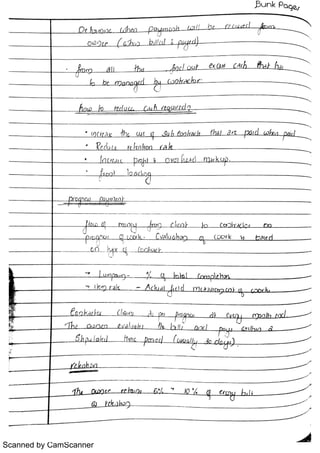 Bunk Pages
Determine when payments will be received from
owner (when billed & payed)
from all the find out excess cash that has
to be managed by contractor.
how to reduce cash required?
• increase the use of Sub contracts that are paid when paid
• Reduce retention rate
• Increase profit & overhead markup.
• front loading
progress payment
flow of money from client to contractor on
progress of work. Evaluation of work is based
on type of contract
→ Lumpsum - % of total completion
→ item rate - Actual field measurement of work
Contractor claims as per progress at every month end.
The owner evaluates the bills and pays within a
Stipulated time period (usually 30 days).
retention
The owner retains 5% - 10% of every bill
@ retention
Scanned by CamScanner